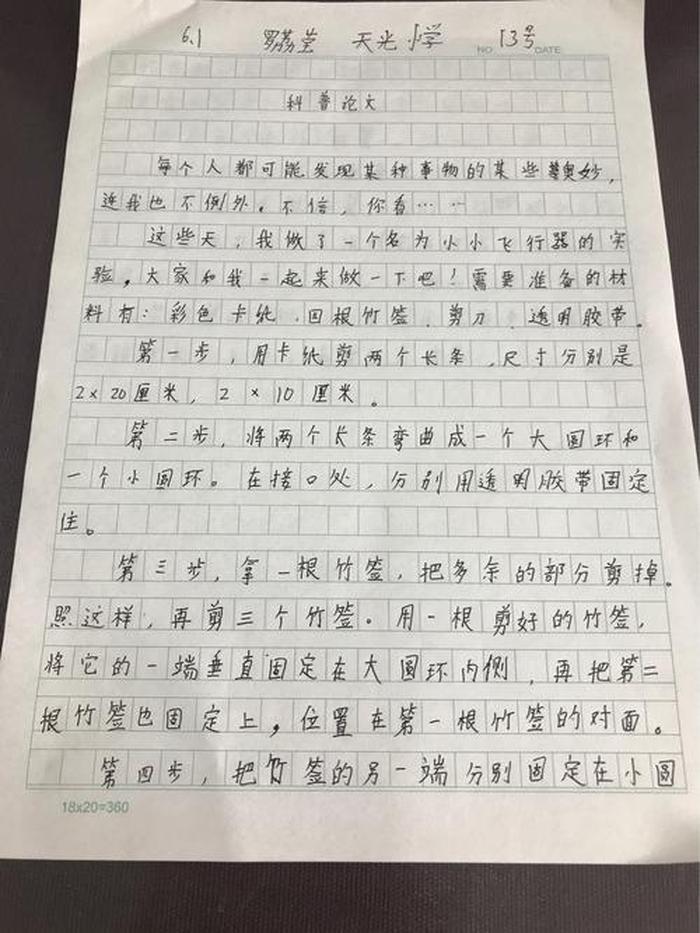 6.1 罗荔莹 天光小学 NO 13号 DATE
科普论文
每个人都可能发现某种事物的某些奥妙,
连我也不例外。不信,你看……
这些天,我做了一个名为小小飞行器的实
验,大家和我一起来做一下吧!需要准备的材
料有:彩色卡纸、四根竹签、剪刀、透明胶带。
第一步,用卡纸剪两个长条,尺寸分别是
2×20厘米,2×10厘米。
第二步,将两个长条弯曲成一个大圆环和
一个小圆环。在接口处,分别用透明胶带固定
住。
第三步,拿一根竹签,把多余的部分剪掉。
照这样,再剪三个竹签。用一根剪好的竹签,
将它的一端垂直固定在大圆环内侧,再把第二
根竹签也固定上,位置在第一根竹签的对面。
第四步,把竹签的另一端分别固定在小圆
18x20=360